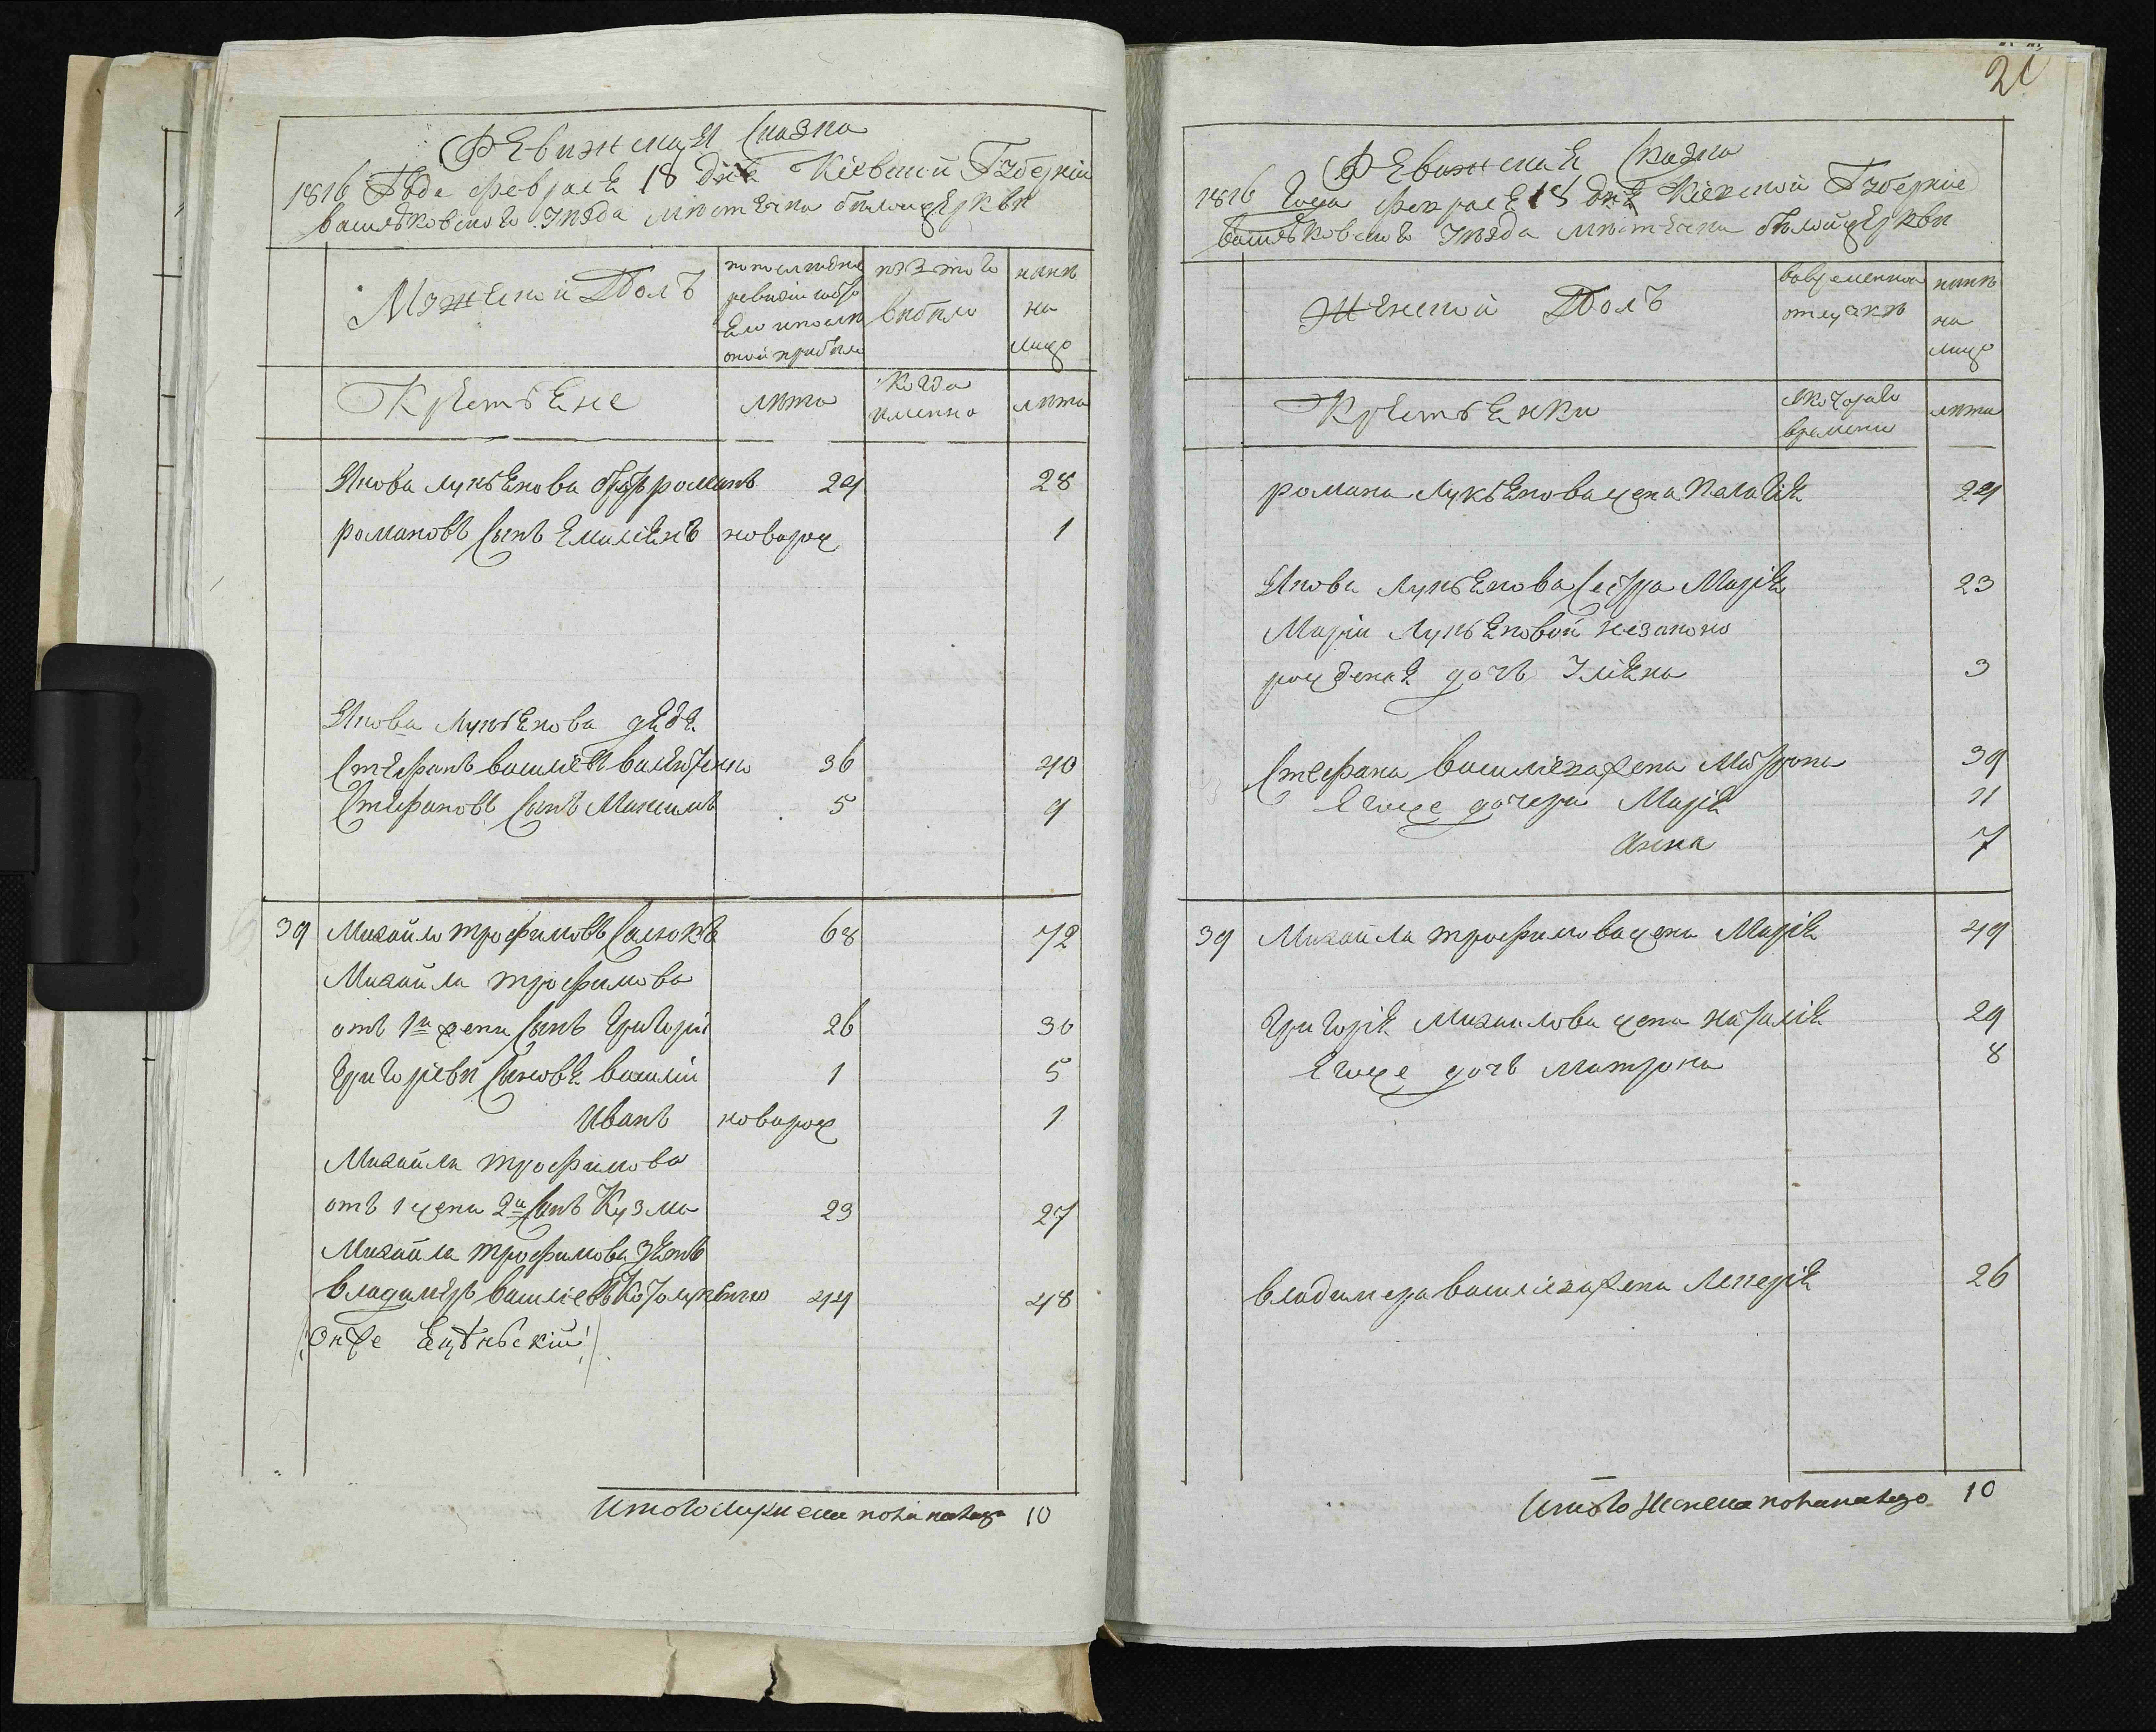 Ревижская Сказка
1816 Года февраля 18 дня Кіевской Губерніи
васильковского Уезда местечка белойцеркви
Мужеской Полъ
по последней
ревизіи состо
яло и после
оной прибыло
изъ того
выбыло
ныне
на
лицо
Крестьяне
лета
Когда
именно
лета
Якова лукьянова братъ романъ 24 28
романовъ Сынъ Емиліянъ новорож 1
Якова Лукьянова дядя
Стефанъ василіевъ 36 40
Стефановъ Сынъ Максимъ 5 9
39 Михайло трофимовъ 68 72
Михайла трофимова
отъ 1й жени Сынъ Григорій 26 30
Григоріеви Сыновя василій 1 5
Иванъ новорож 1
Михайла трофимова
отъ 1 жени 2й Сынъ Кузма 23 27
Михайла трофимова Зять
владимеръ василіевъ 44 48
Онже
Итого мужеска пола налицо 10
21
Ревижская Сказка
1816 Года февраля 18 дня Кіевской Губерніи
васильковского Уезда местечка белойцеркви
Женской Полъ
вовременной
отлучке
ныне
на
лицо
Крестьянки
скоторого
времени
лета
романа Лукьянова жена Палагія 24
Якова Лукьянова Сестра Марія 23
Маріи Лукьяновой незаконо
рожденая дочь Уліяна 3
Стефана василіева жена Матрона 39
Егоже дочери Марія 11
Анна 7
39 Михайла трофимова жена Марія 49
Григорія Михаилова жена наталія 29
Егоже дочь матрона 8
владимера василіева жена 26
Итого женска пола налицо 10